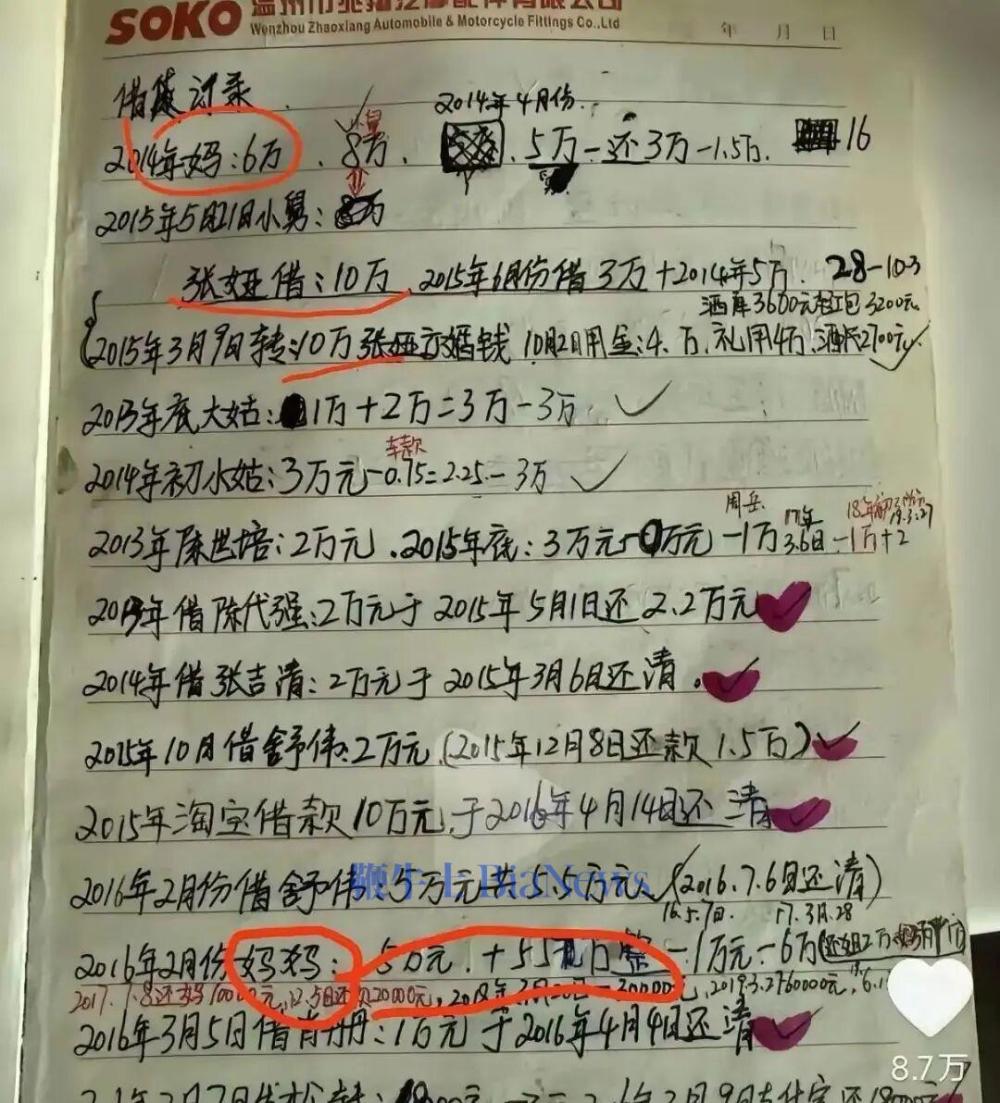 SOKO 温州市兆翔汽摩配件有限公司
Wenzhou Zhaoxiang Automobile & Motorcycle Fittings Co.,Ltd
年 月 日
借钱记录
2014年4月份
2014年妈:6万、8万、5万-还3万-1.5万. 16
2015年5月21日小舅:8万
张娅借:10万 2015年6月份借3万+2014年5万. 28-10.3
酒席3600元红包3200元
2015年3月9日转:10万张娅 婚钱 10月2日用金:4.万.礼用4万.酒 2700元
2013年底大姑:1万+2万=3万-3万
车款
2014年初小姑:3万元-0.75=2.25-3万
周岳 17年 18年 19.3.27
2013年陈世培:2万元、2015年底:3万元- 万元-1万 3.6日-1万+2
2013年借陈代强:2万元于2015年5月1日还2.2万元
2014年借张吉清:2万元于2015年3月6日还清.
2015年10月借舒伟:2万元(2015年12月8日还款1.5万)
2015年淘宝借款10万元,于2016年4月14日还清
鞭牛士 BiaNews
2016年2月份借舒伟:5万元共5.5万元(2016.7.6日还清)
16.5.7日. 17.3月.28
2016年2月份妈妈:5万元.+5.5 整-1万元-6万(还姐2万
2017.7.8还妈10000元,12.5日还 20000元,2018年2月 30000元,2019.3.27 60000元,
2016年3月5日借 丹:1万元于2016年4月4日还清
8.7万